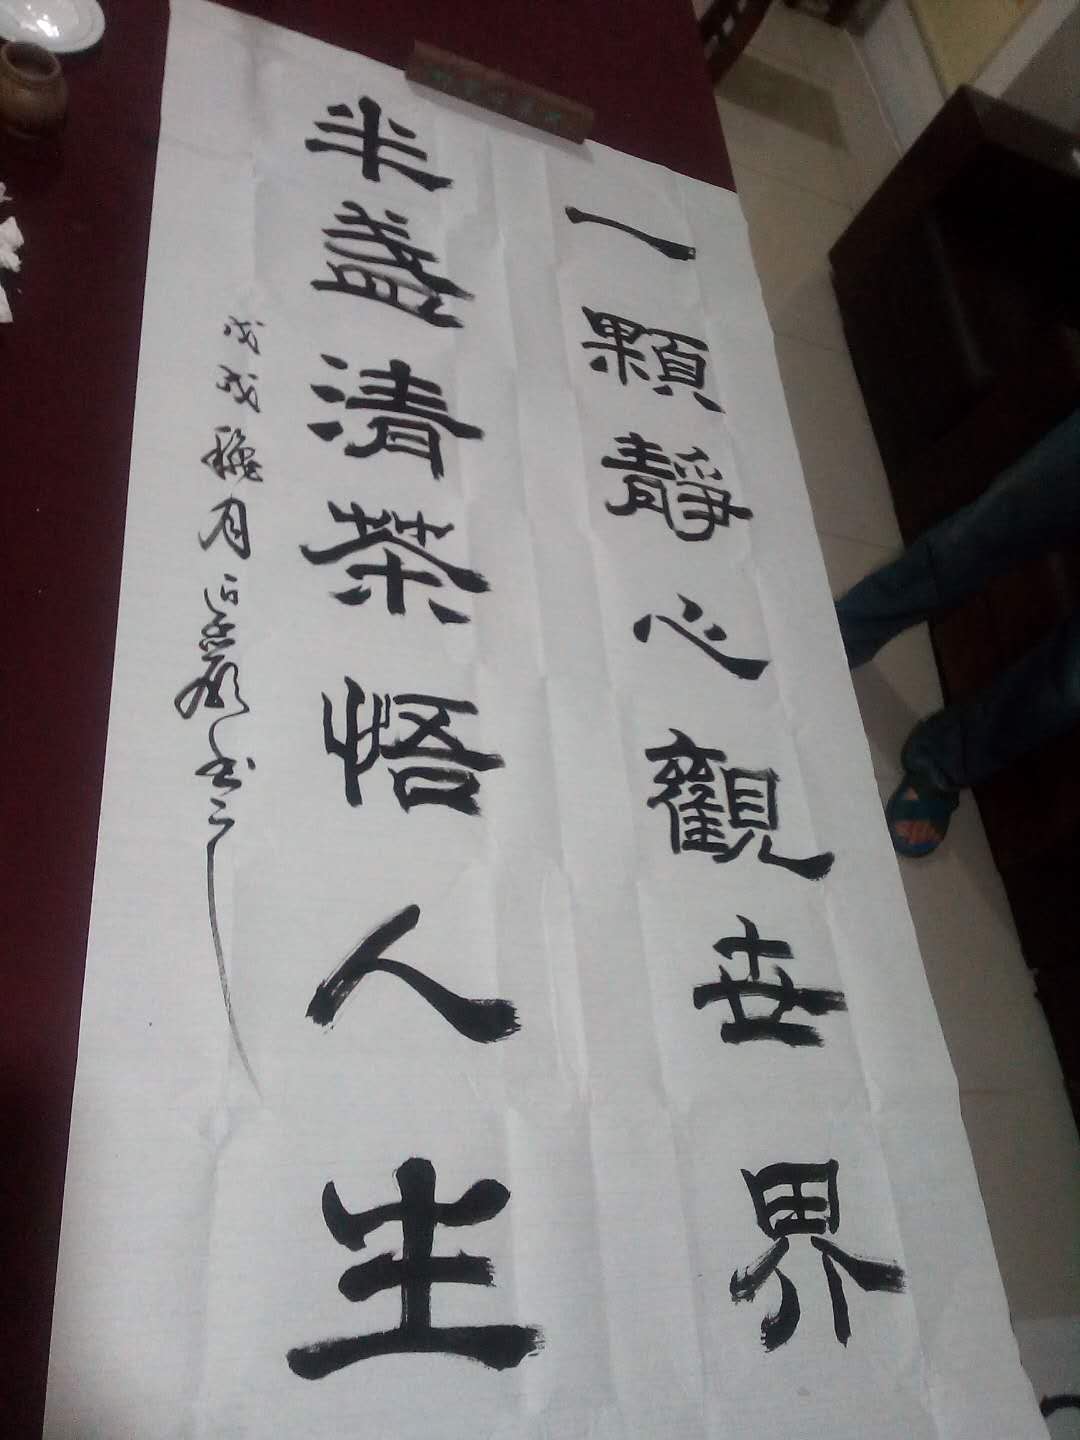 一顆靜心觀世界
半盞清茶悟人生
戊戌穐月